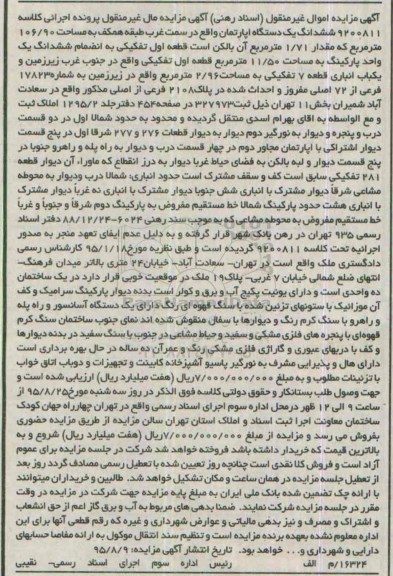 آگهی مزایده اموال غیرمنقول (اسناد رهنی) آگهی مزایده مال غیرمنقول پرونده اجرائی کلاسه
۹۲۰۰۸۱۱ ششدانگ یک دستگاه آپارتمان واقع در سمت غرب طبقه همکف به مساحت ۱۰۶/۹۰
مترمربع که مقدار ۱/۷۱ مترمربع آن بالکن است قطعه اول تفکیکی به انضمام ششدانگ یک
واحد پارکینگ به مساحت ۱۱/۵۰ مترمربع قطعه اول تفکیکی واقع در جنوب غرب زیرزمین و
یکباب انباری قطعه ۷ تفکیکی به مساحت ۲/۹۶ مترمربع واقع در زیرزمین به شماره ۱۷۸۲۳
فرعی از ۷۲ اصلی مفروز و احداث شده در پلاک ۲۱۰۸ فرعی از اصلی مذکور واقع در سعادت
آباد شمیران بخش ۱۱ تهران ذیل ثبت ۳۲۷۹۷۳ در صفحه ۴۵۲ دفتر جلد ۱۲۹۵/۲ املاک ثبت
و مع الواسطه به آقای بهرام اسدی منتقل گردیده و محدود به حدود شمالا اول در دو قسمت
درب و پنجره و دیوار به نورگیر دوم دیوار به دیوار قطعات ۲۷۶ و ۲۷۷ شرقا اول در پنج قسمت
دیوار اشتراکی با آپارتمان مجاور دوم در چهار قسمت درب و دیوار به راه پله و راهرو جنوبا در
پنج قسمت دیوار و لبه بالکن به فضای حیاط غربا دیوار به درز انقطاع که ماوراء آن دیوار قطعه
۲۸۱ تفکیکی سابق است کف و سقف مشترک است حدود انباری: شمالا درب و دیوار به محوطه
مشاعی شرقا دیوار مشترک با انباری شش جنوبا دیوار مشترک با انباری نه غربا دیوار مشترک
با انباری هشت حدود پارکینگ شمالا خط مستقیم مفروض به پارکینگ دوم شرقا و جنوبا و غربا
خط مستقیم مفروض به محوطه مشاعی که به موجب سند رهنی ۶۰۲۴-۸۸/۱۲/۲۴ دفتر اسناد
رسمی ۹۳۵ تهران در رهن بانک شهر قرار گرفته و به دلیل عدم ایفای تعهد منجر به صدور
اجرائیه تحت کلاسه ۹۲۰۰۸۱۱ گردیده است و طبق نظریه مورخ ۹۵/۱/۱۸ کارشناس رسمی
دادگستری ملک واقع است در تهران- سعادت آباد- خیابان ۲۴ متری بالاتر میدان فرهنگ-
انتهای ضلع شمالی خیابان ۷ غربی- پلاک ۱۹ ملک در موقعیت خوبی قرار دارد در یک ساختمان
ده واحدی است و دارای یونیت پکیج آب و برق و کولر است بدنه دیوار پارکینگ سرامیک و کف
آن موزائیک با ستونهای تزئین شده با سنگ قهوه ای رنگ دارای یک دستگاه آسانسور و راه پله
و راهرو با سنگ کرم رنگ و دیوارها با سفال منقوش شده اند نمای جنوب ساختمان سنگ کرم
قهوه‌ای با پنجره های فلزی مشکی و سفید و حیاط مشاعی در جنوب با سنگ سفید در بدنه دیوارها
و کف با دربهای عبوری و گاراژی فلزی مشکی رنگ و عمر آن ده ساله در حال بهره برداری است
دارای هال و پذیرایی مشرف به نورگیر پاسیو آشپزخانه کابینت و تجهیزات و دوباب اتاق خواب
با تزئینات مطلوب و به مبلغ ۷/۰۰۰/۰۰۰/۰۰۰ ریال (هفت میلیارد ریال) ارزیابی شده است و
جهت وصول طلب بستانکار و حقوق دولتی کلاسه فوق الذکر در روز سه شنبه مورخ ۹۵/۸/۲۵ از
ساعت ۹ الی ۱۲ ظهر در محل اداره سوم اجرای اسناد رسمی واقع در تهران چهارراه جهان کودک
ساختمان معاونت اجرا ثبت اسناد و املاک استان تهران سالن مزایده از طریق مزایده حضوری
بفروش می رسد و مزایده از مبلغ ۷/۰۰۰/۰۰۰/۰۰۰ ریال (هفت میلیارد ریال) شروع و به
بالاترین قیمت که خریدار داشته باشد فروخته خواهد شد شرکت در جلسه مزایده برای عموم
آزاد است و فروش کلا نقدی است چنانچه روز تعیین شده با تعطیل رسمی مصادف گردد روز بعد
از تعطیل جلسه مزایده در همان ساعت و مکان تشکیل خواهد شد. طالبین و خریداران میتوانند
با ارائه چک تضمین شده بانک ملی ایران به مبلغ پایه مزایده جهت شرکت در مزایده در وقت
مقرر در جلسه مزایده شرکت نمایند. ضمنا بدهی های مربوط به آب و برق گاز اعم از حق انشعاب
و اشتراک و مصرف و نیز بدهی مالیاتی و عوارض شهرداری و غیره که رقم قطعی آنها برای این
اداره معلوم نشده بعهده برنده مزایده است و تنظیم سند انتقال موکول به ارائه مفاصا حسابهای
دارایی و شهرداری و... خواهد بود. تاریخ انتشار آگهی مزایده: ۹۵/۸/۹
۱۶۳۲۴/م الف رئیس اداره سوم اجرای اسناد رسمی- نقیبی